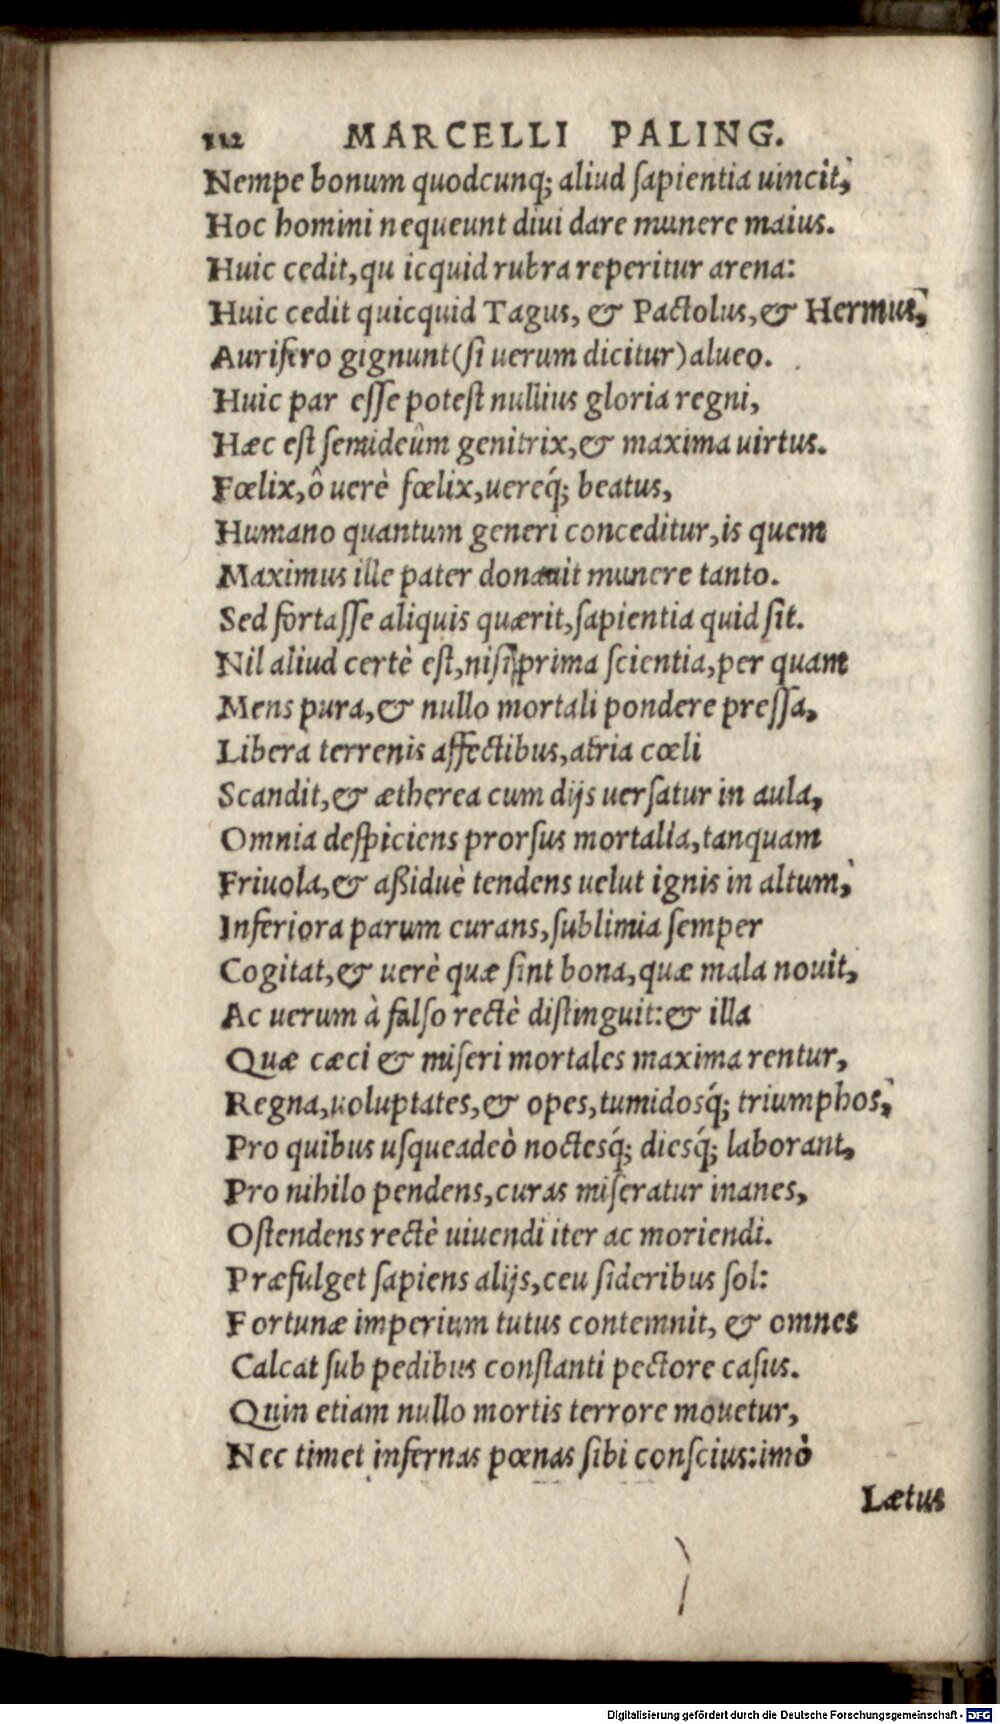 112 MARCELLI PALING.
Nempe bonum quodcunq; aliud ſapientia uincit,
Hoc homini nequeunt diui dare munere maius.
Huic cedit, qu icquid rubra reperitur arena:
Huic cedit quicquid Tagus, & Pactolus, & Hermus,
Aurifero gignunt (ſi uerum dicitur) alueo.
Huic par eſſe poteſt nullius gloria regni,
Hæc eſt ſemideûm genitrix, & maxima uirtus.
Fœlix, ô uerè fœlix, uereq́; beatus,
Humano quantum generi conceditur, is quem
Maximus ille pater donauit munere tanto.
Sed fortaſſe aliquis quærit, ſapientia quid ſit.
Nil aliud certè eſt, niſi prima ſcientia, per quam
Mens pura, & nullo mortali pondere preſſa,
Libera terrenis affectibus, atria cœli
Scandit, & ætherea cum dijs uerſatur in aula,
Omnia deſpiciens prorſus mortalia, tanquam
Friuola, & aßiduè tendens uelut ignis in altum,
Inferiora parum curans, ſublimia ſemper
Cogitat, & uerè quæ ſint bona, quæ mala nouit,
Ac uerum à falſo rectè diſtinguit: & illa
Quæ cæci & miſeri mortales maxima rentur,
Regna, uoluptates, & opes, tumidosq́; triumphos,
Pro quibus uſqueadeò noctesq́; diesq́; laborant,
Pro nihilo pendens, curas miſeratur inanes,
Oſtendens rectè uiuendi iter ac moriendi.
Præfulget ſapiens alijs, ceu ſideribus ſol:
Fortunæ imperium tutus contemnit, & omnes
Calcat ſub pedibus conſtanti pectore caſus.
Quin etiam nullo mortis terrore mouetur,
Nec timet infernas pœnas ſibi conſcius: imò
Lætus
Digitalisierung gefördert durch die Deutsche Forschungsgemeinschaft - DFG